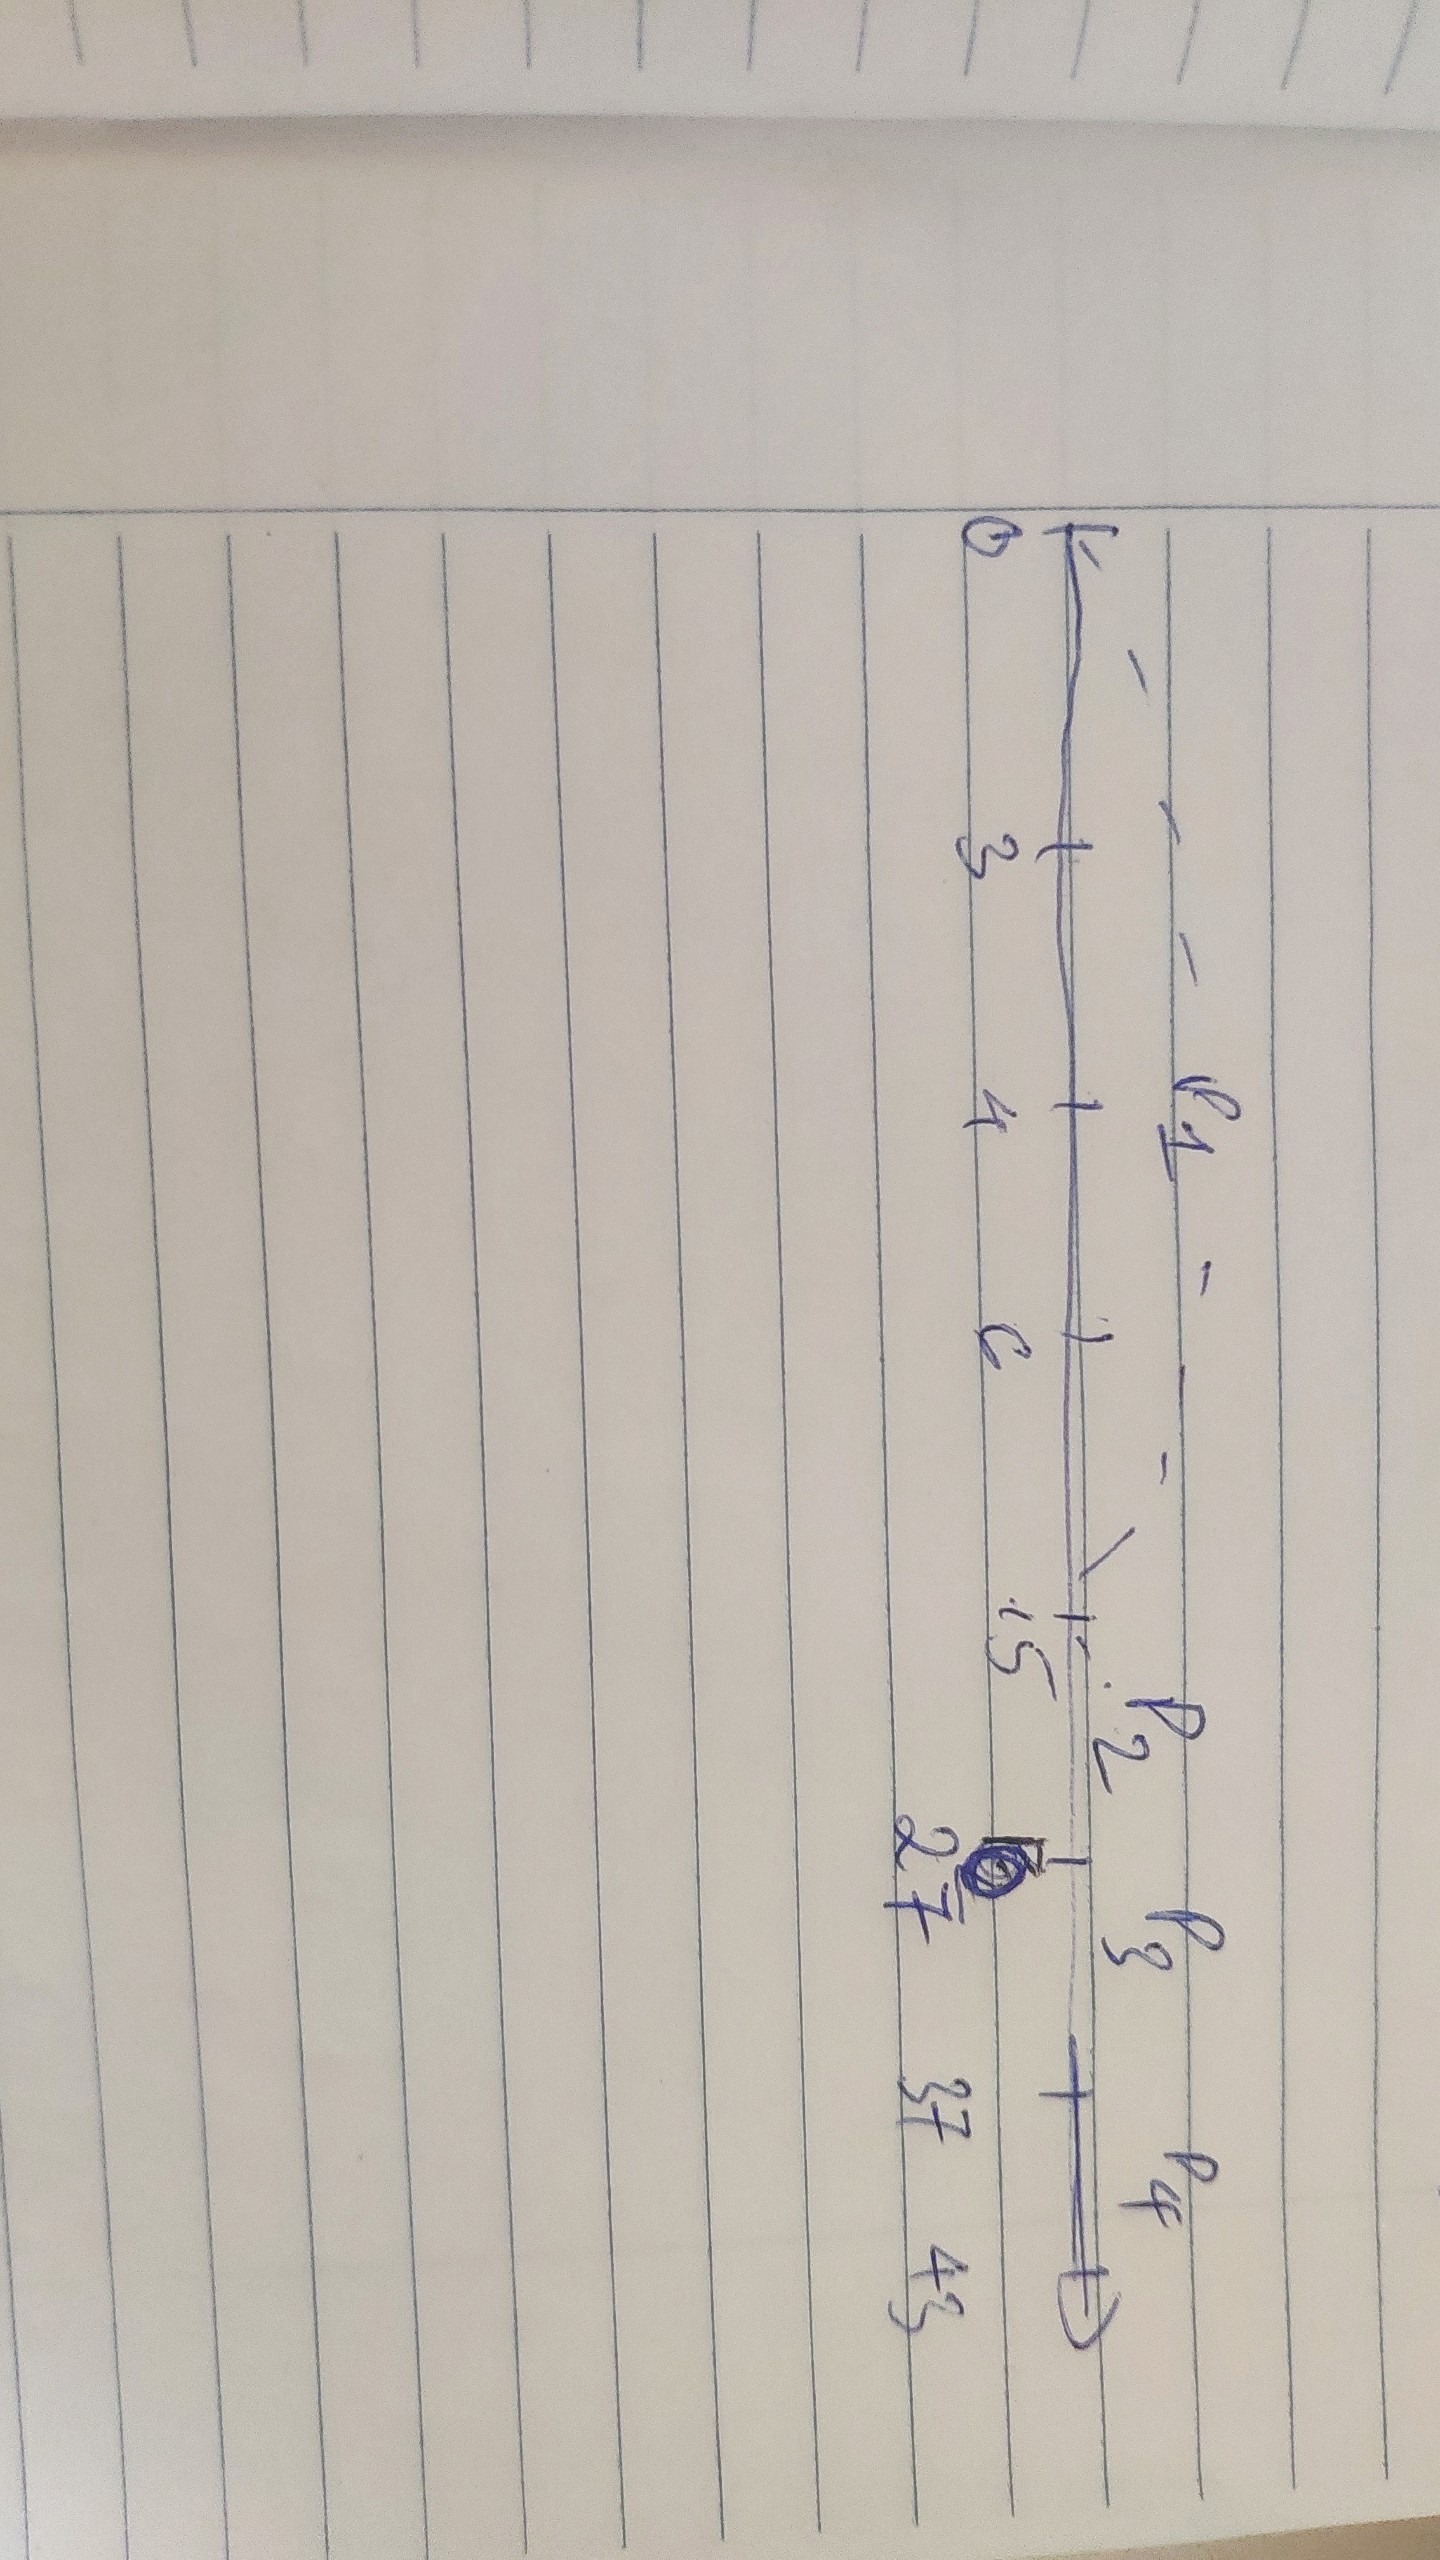 P1 P2 P3 P4
0 3 4 6 15
27 37 43